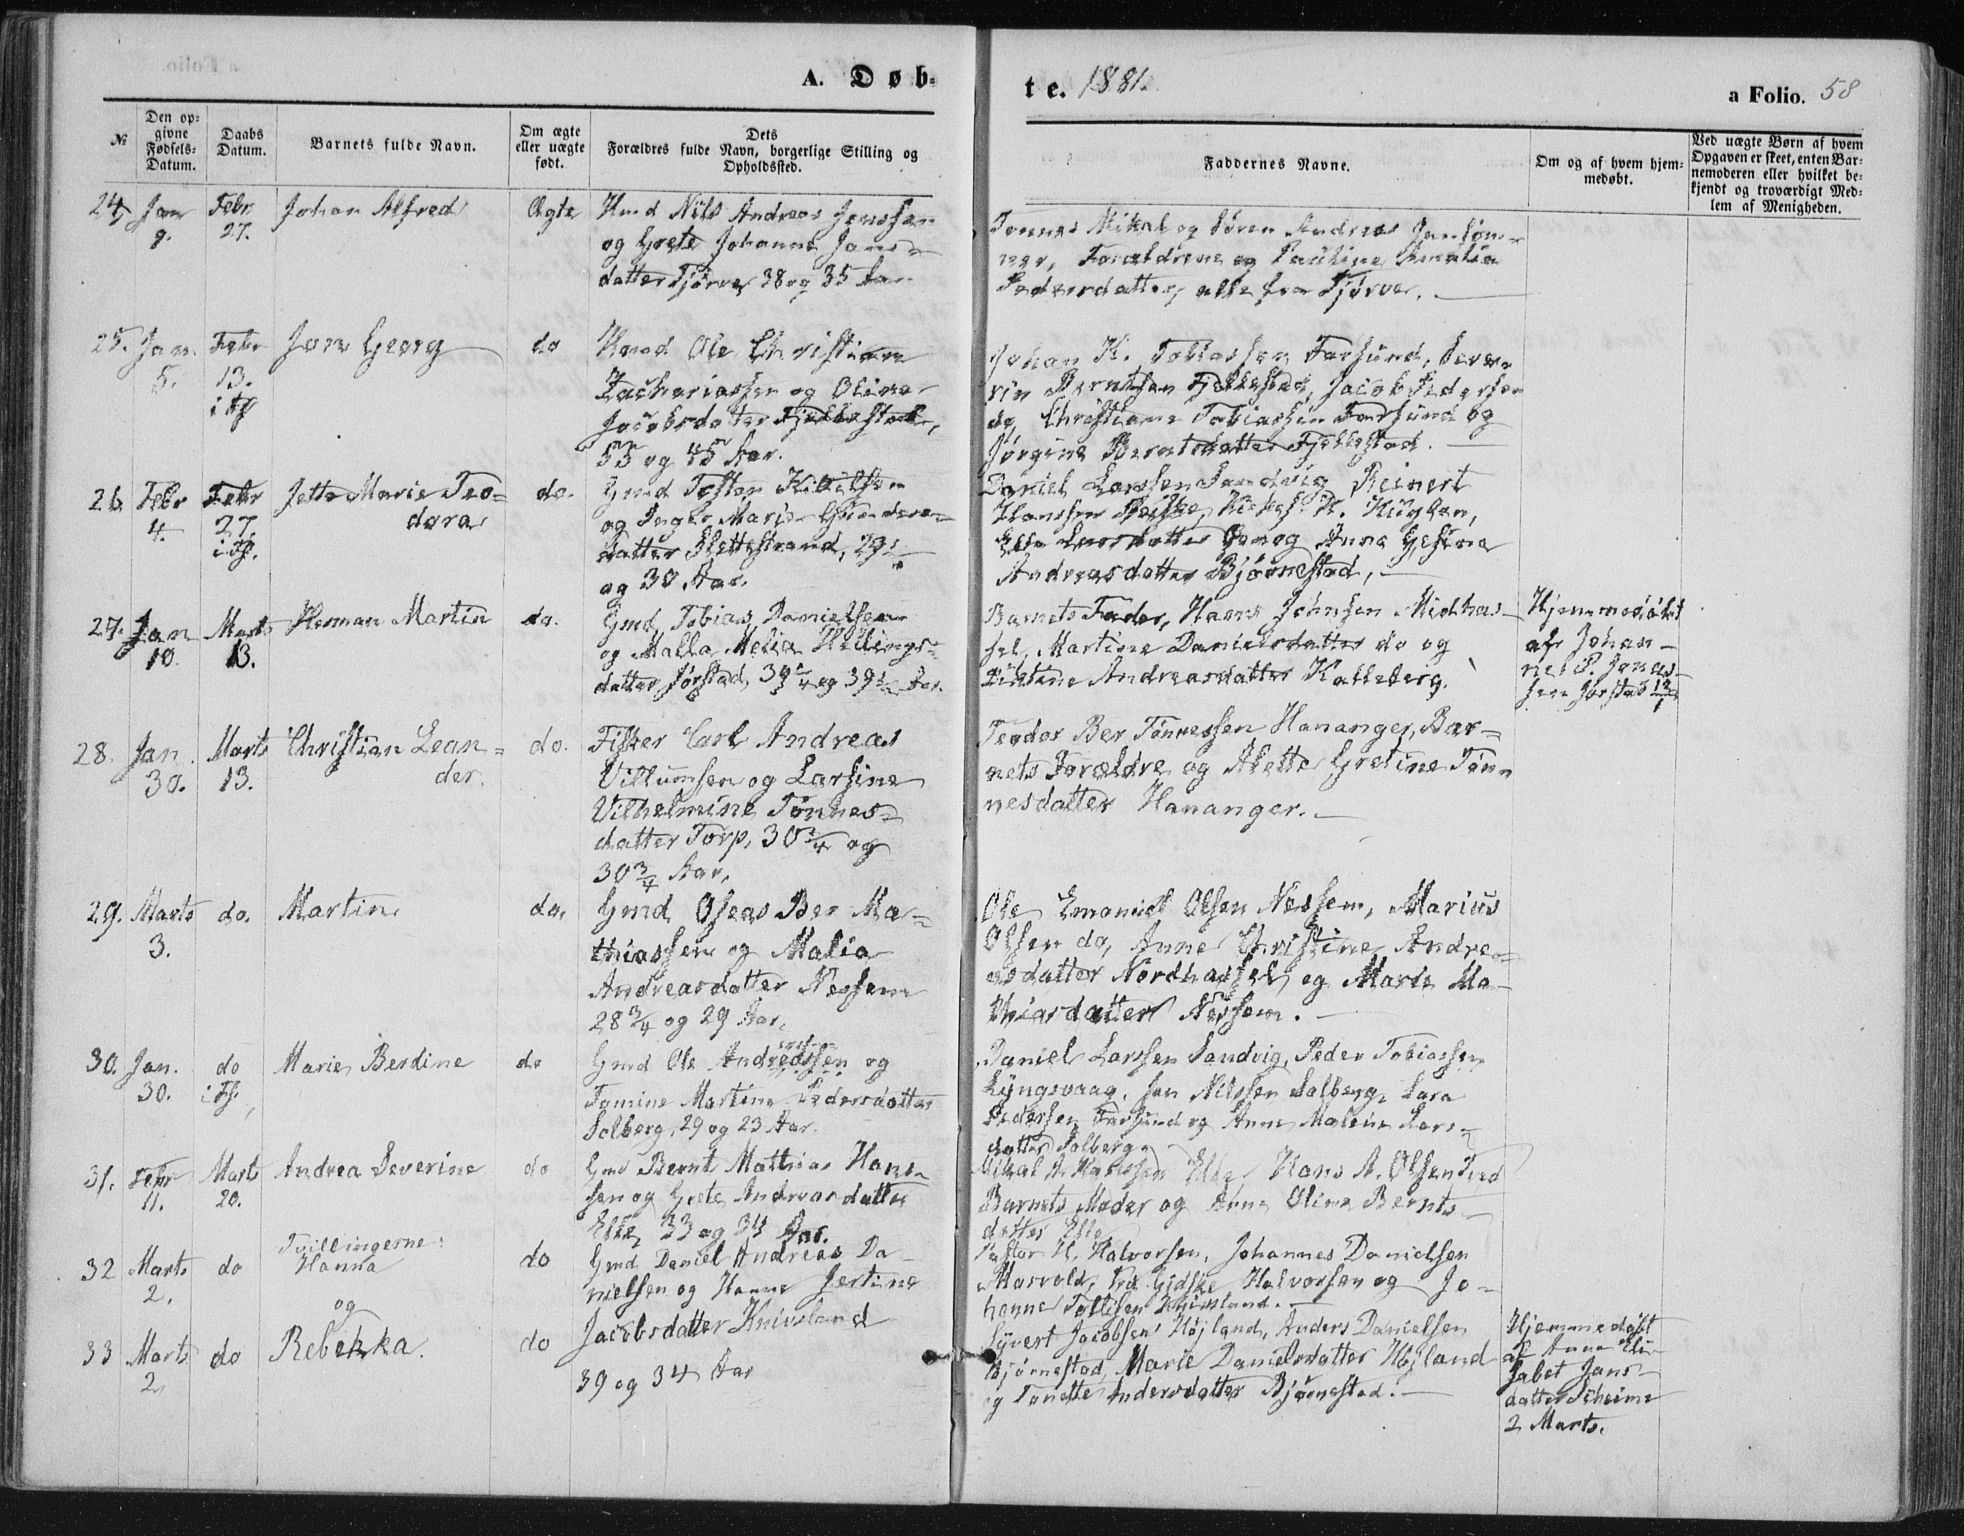 A. Døb-
te. 1881.
a Folio. 58
№
Den op-
givne
Fødsels-
Datum.
Daabs
Datum.
Barnets fulde Navn.
Om ægte
eller uægte
født.
Dets
Forældres fulde Navn, borgerlige Stilling og
Opholdssted.
Faddernes Navne.
Om og af hvem hjem-
medøbt.
Ved uægte Børn af hvem
Opgaven er skeet, enten Bar-
nemoderen eller hvilket be-
kjendt og troværdigt Med-
lem af Menigheden.
24 Jan 9. Febr 27. Johan Alfred Ægte
Hmd Nils Andreas Jonssen
og Grete Johanne Jans-
datter Tjørve, 38 og 35 Aar
Tønnes Mikal og Søren Andreas Janssøn-
ner, Forældrene og Pauline Amalia
Pedersdatter, alle fra Tjørve.
25. Jan. 5. Febr 13. i Fs. Jon Georg do
Hmd Ole Christian
Zachariassen og Oline
Jacobsdatter Fjellestad,
53 og 45 Aar.
Johan K. Tobiassen Farsund, Seve-
rin Berntsen Fjellestad, Jacob Pedersen
do, Christiane Tobiassen Farsund og
Jørgine Berntsdatter Fjellestad.
26. Febr 4. Febr 27. i Fs. Jette Marie Teo-
dora do.
Gmd Tosten Kittilsen
og Inger Marie Gunders-
datter Slettestrand, 29
og 30 Aar.
Daniel Larssen Sandvig, Reinert
Hanssen
Larsdatter og Anna Gesine
Andreasdatter Bjørnestad,
27. Jan 10. Marts 13. Herman Martin do.
Gmd Tobias Danielsen
og Malla Melia Hellings-
datter Jørstad, 39 og 39 Aar.
Barnets Fader, Hans Johnsen Midthas-
sel, Martine Danielsdatter do og
Andreasdatter Kalleberg.
Hjemmedøbt
af Johan-
nes P. Jonas-
sen Jørstad
28. Jan. 30. Marts 13. Christian Lean-
der. do.
Fisker Carl Andreas
Villumsen og Larsine
Vilhelmine Tønnes-
datter Torp, 30 ¾ og
30 ¾ Aar,
Teodor Ber Tønnessen Hananger, Bar-
nets Forældre og Alette Gretine Tøn-
nesdatter Hananger.
29. Marts 3. do. Martin do.
Gmd Oseas Ber Ma-
thiassen og Malia
Andreasdatter Nessem
28 ¾ og 29 Aar,
Ole Emanuel Olsen Nessem, Marius
Olsen do, Anne Christine Andre-
asdatter Nordhassel og Marie Ma-
thiasdatter Nessem.
30. Jan. 30. do i Fs. Marie Berdine do
Gmd Ole Andreassen og
Tomine Martine Pedersdatter
Solberg, 29 og 23 Aar.
Daniel Larssen Sandvig, Peder Tobiassen
Lyngsvaag, Jan Nilssen Solberg, Lara
Pedersen Farsund og Anne Malene Lars-
datter Solberg.
31. Febr 11. Marts 20. Andrea Severine do
Gmd Bernt Mathias Hans-
sen og Grete Andreasdatter
Elle, 33 og 34 Aar.
Mikal A. Hanssen Elle, Hans A. Olsen
Barnets Moder og Anne Oline Bernts-
datter Elle
32 Marts 2. do Tvillingerne:
Hanna
og do
Gmd Daniel Andreas Da-
nielsen og Hanne Jertine
Jacobsdatter Knivsland
39 og 34 Aar
Pastor H. Halvorsen, Johannes Danielsen
Marvold, Fra Gidske Halvorsen og Jo-
hanne Tollisen Knivsland.
33 Marts 2. do Rebekka. do
Syvert Jacobsen Højland, Anders Danielsen
Bjørnestad, Marie Danielsdatter Højland
og Tonette Andersdatter Bjørnestad.
Hjemmedøbt
af Anne Eli-
sabet Jans-
datter Scheime
2 Marts.